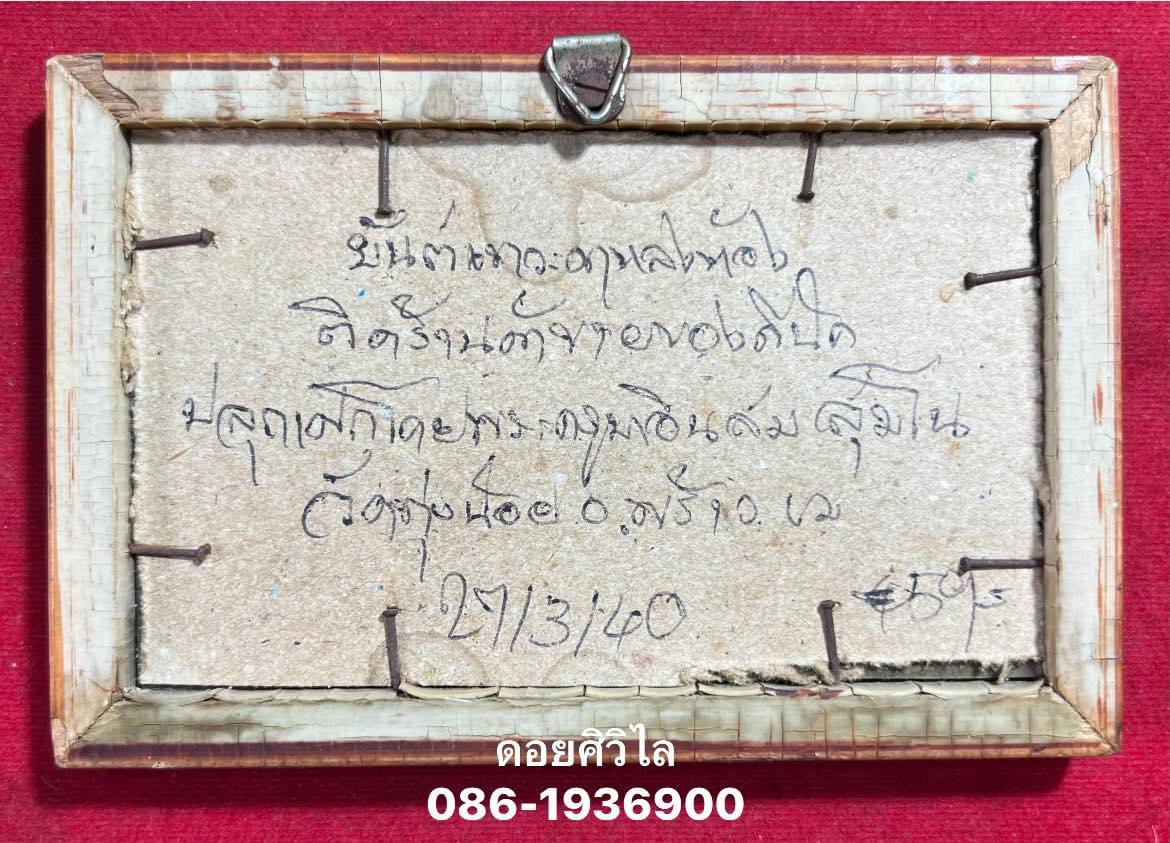 ยันต์เทวะดาหลงห้อง
ติดร้านค้าขายของดีนัก
ปลุกเสกโดยพระครูบาอินสม สุมโน
วัดทุ่งน้อย อ.พร้าว ชม
27/3/40
ดอยศิวิไล
086-1936900